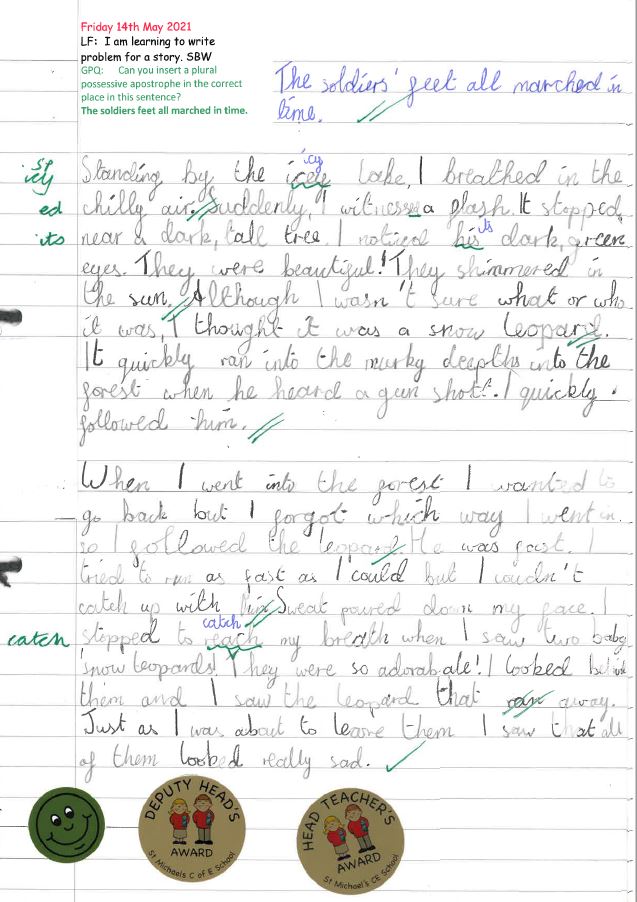 Friday 14th May 2021
LF: I am learning to write
problem for a story. SBW
GPQ: Can you insert a plural
possessive apostrophe in the correct
place in this sentence?
The soldiers feet all marched in time.
The soldiers' feet all marched in
time.
sp
icy
icy
Standing by the icey lake, I breathed in the
ed
chilly air. Suddenly, I witness a flash. It stopped
its
its
near a dark, tall tree. I noticed his dark, green
eyes. They were beautiful! They shimmered in
the sun. Although I wasn't sure what or who
it was, I thought it was a snow leopard.
It quickly ran into the murky depths into the
forest when he heard a gun shot!. I quickly
followed him.
When I went into the forest I wanted to
go back but I forgot which way I went in.
so I followed the leopard. He was fast. I
tried to run as fast as I could but I couldn't
catch up with him. Sweat poured down my face. I
catch
catch
stopped to reach my breath when I saw two baby
snow leopards! They were so adorabale! I looked behind
them and I saw the leopard that ran away.
Just as I was about to leave them I saw that all
of them looked really sad.
DEPUTY HEAD'S
AWARD
St Michaels C of E School
HEAD TEACHER'S
AWARD
St Michael's CE School